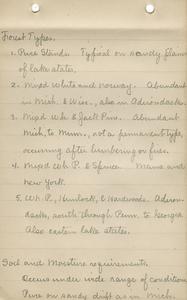 Forest Types.
1. Pure Stands. Typical on sandy plains
of lake states.
2. Mixed White and Norway. Abundant
in Mich. & Wisc., also in Adirondacks.
3. Mixed Wh. & Jack Pine. Abundant
Mich. to Minn., not a permanent type,
occurring after lumbering or fires.
4. Mixed W. P. & Spruce. Maine and
New York.
5. W. P., Hemlock, & Hardwoods. Adiron-
dacks, south through Penn. to Georgia
Also eastern lake states.
Soil and Moisture requirements.
Occurs under wide range of conditions
Pure on sandy drift as in Mich.